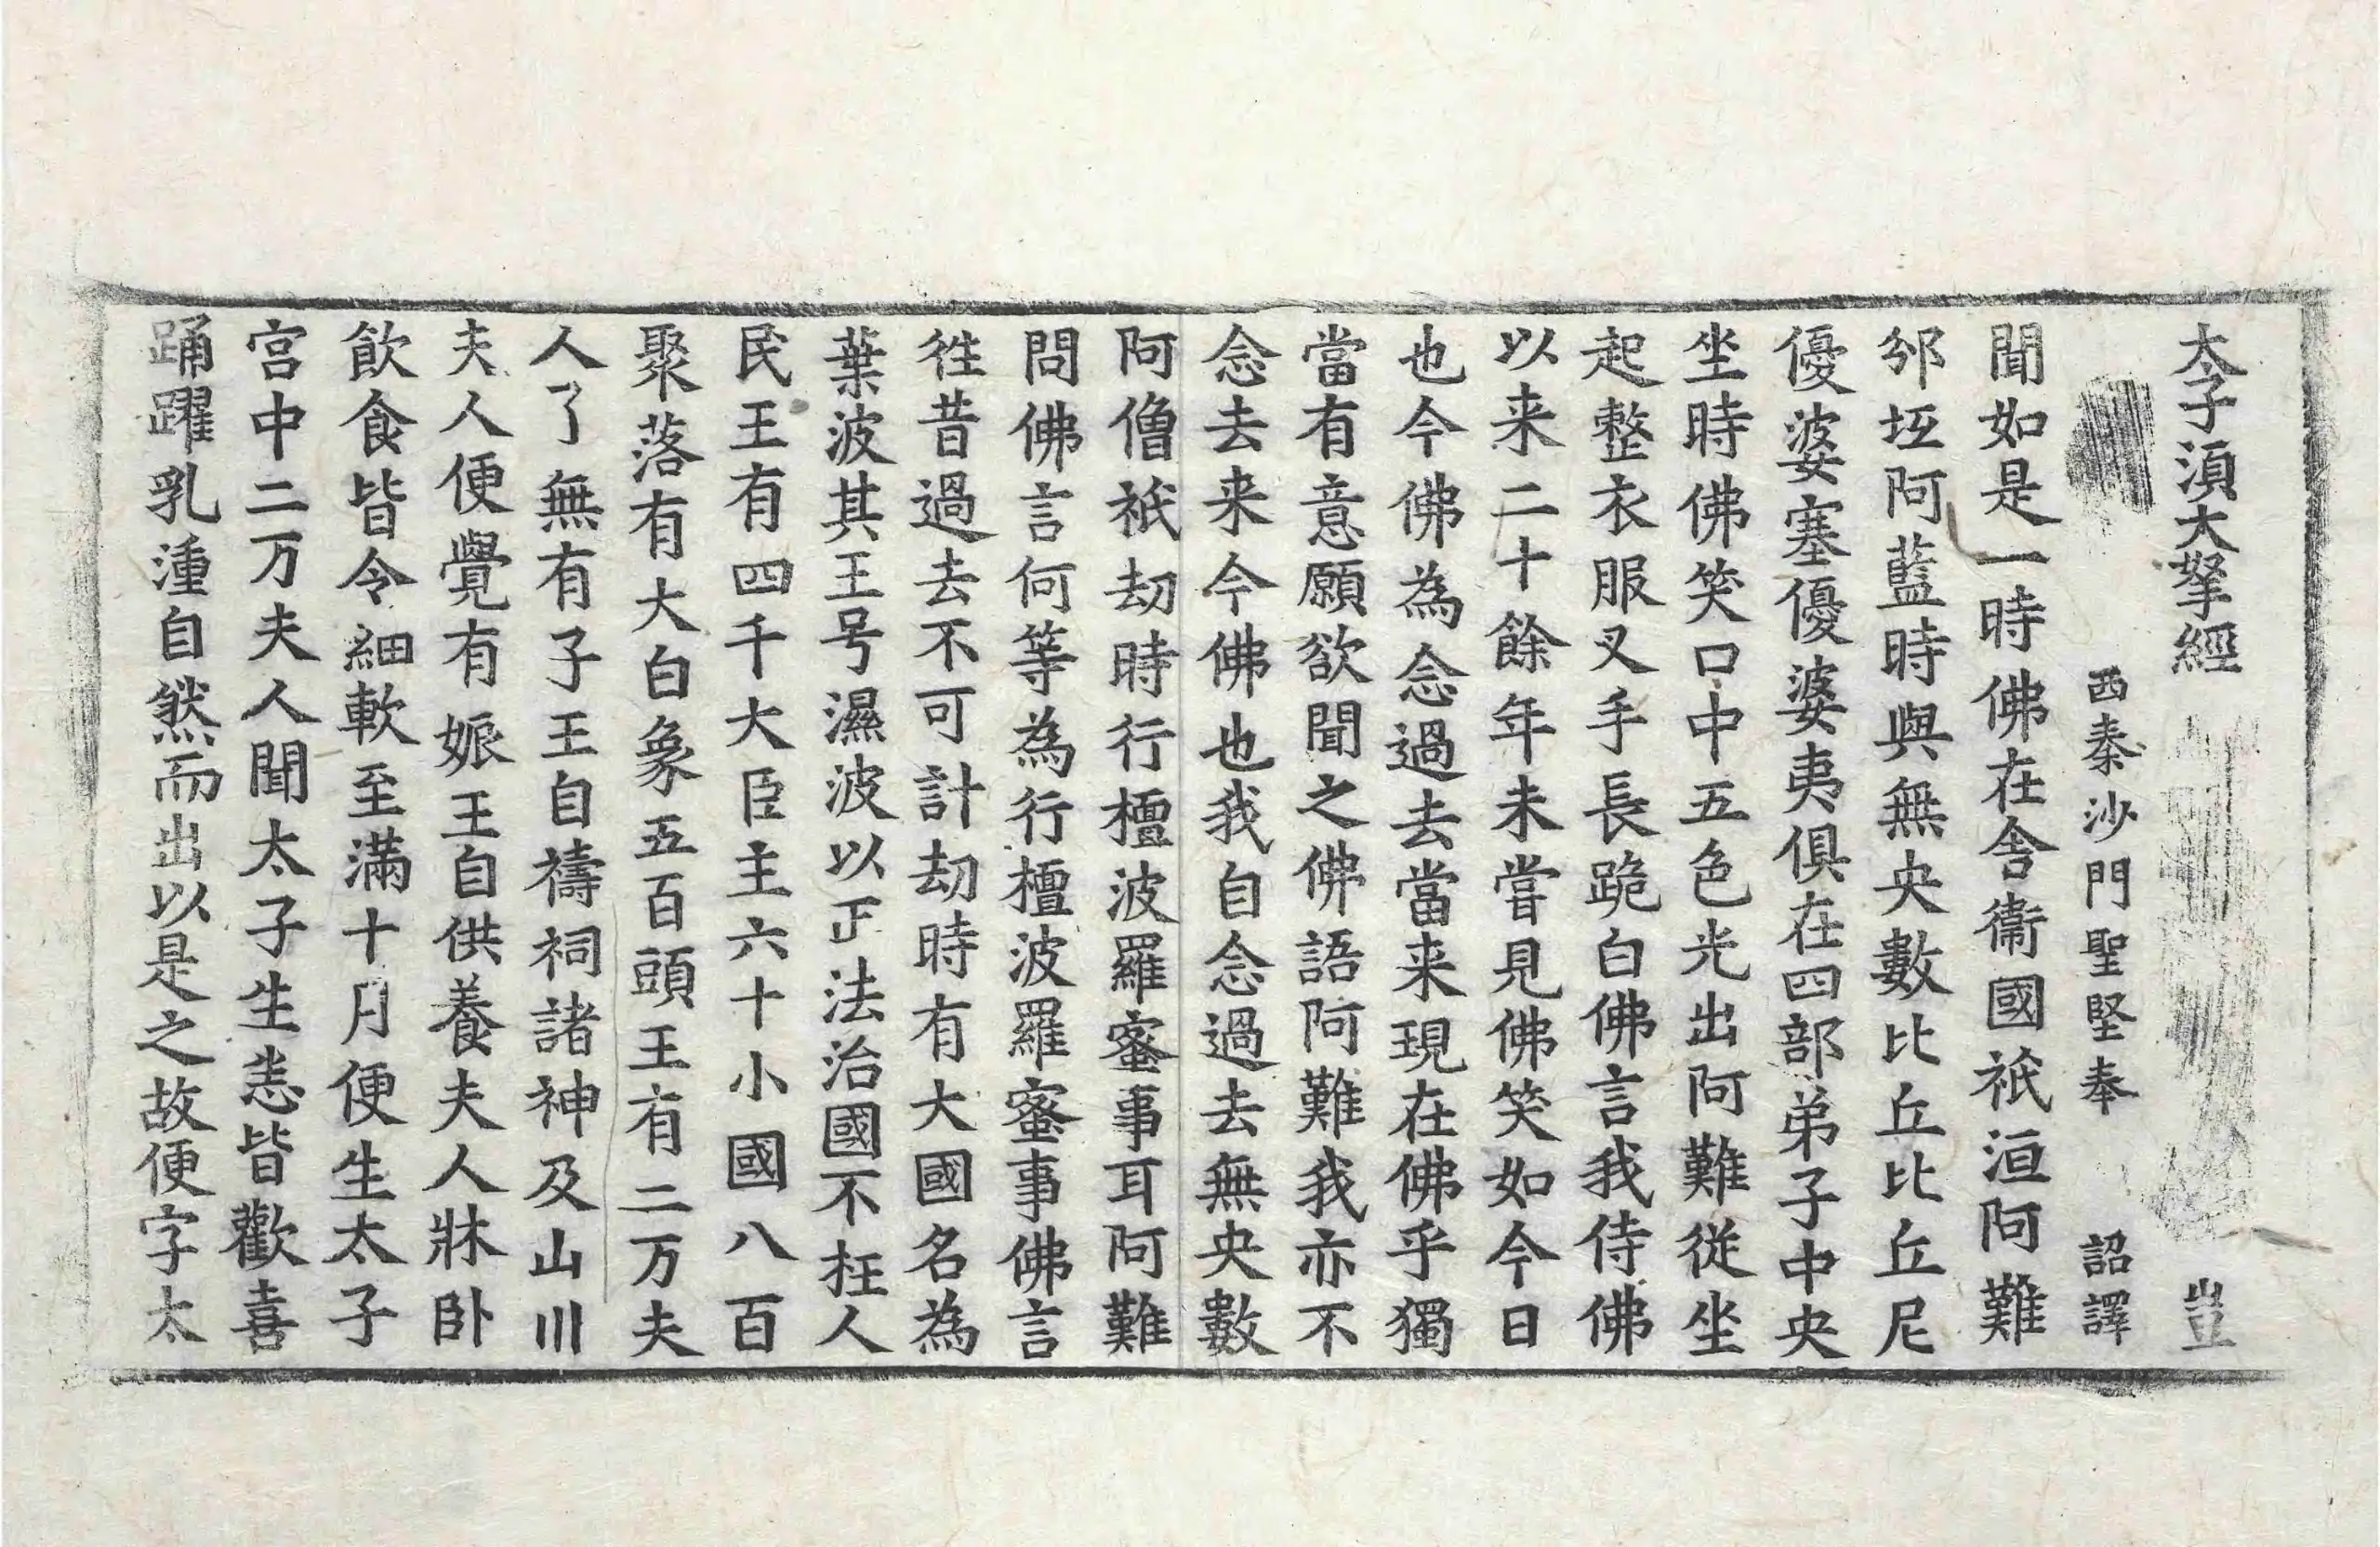 太子湏大拏經 豈
西秦沙門聖堅奉 詔譯
聞如是一時佛在舍衞國祇洹阿難
邠坻阿藍時與無央數比丘比丘尼
優婆塞優婆夷俱在四部弟子中央
坐時佛笑口中五色光出阿難從坐
起整衣服叉手長跪白佛言我侍佛
以来二十餘年未嘗見佛笑如今日
也今佛為念過去當来現在佛乎獨
當有意願欲聞之佛語阿難我亦不
念去来今佛也我自念過去無央數
阿僧祇劫時行檀波羅蜜事耳阿難
問佛言何等為行檀波羅蜜事佛言
徃昔過去不可計劫時有大國名為
葉波其王号濕波以正法治國不枉人
民王有四千大臣主六十小國八百
聚落有大白象五百頭王有二万夫
人了無有子王自禱祠諸神及山川
夫人便覺有娠王自供養夫人牀卧
飲食皆令細軟至滿十月便生太子
宮中二万夫人聞太子生恚皆歡喜
踊躍乳湩自然而出以是之故便字太